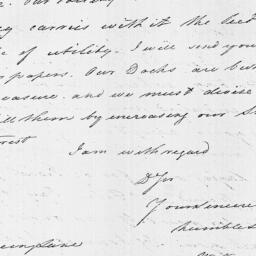 carries with it the
of utility. I will send you
papers. Our Docks are
easure. and we must devise
them by increasing our
rest
I am with regard
D Sir
Your sincere
humble